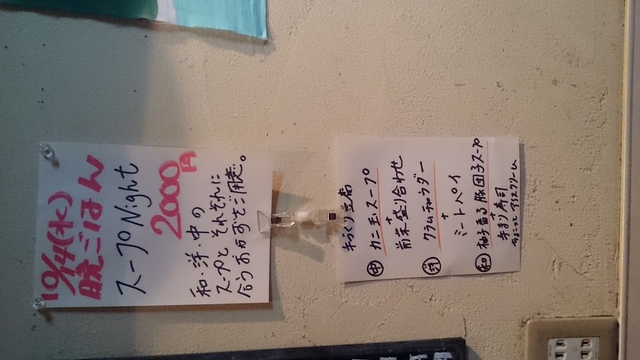 10/14(水)
晩ごはん
スープNight
2000円
和・洋・中の
スープとそれぞれに
合うおかずをご用意。
手づくり豆腐
中 カニ玉スープ
+
前菜盛り合わせ
洋 クラムチャウダー
+
ミートパイ
和 柚子香る豚団子スープ
+
手まり寿司
ちょこっとアイスクリーム